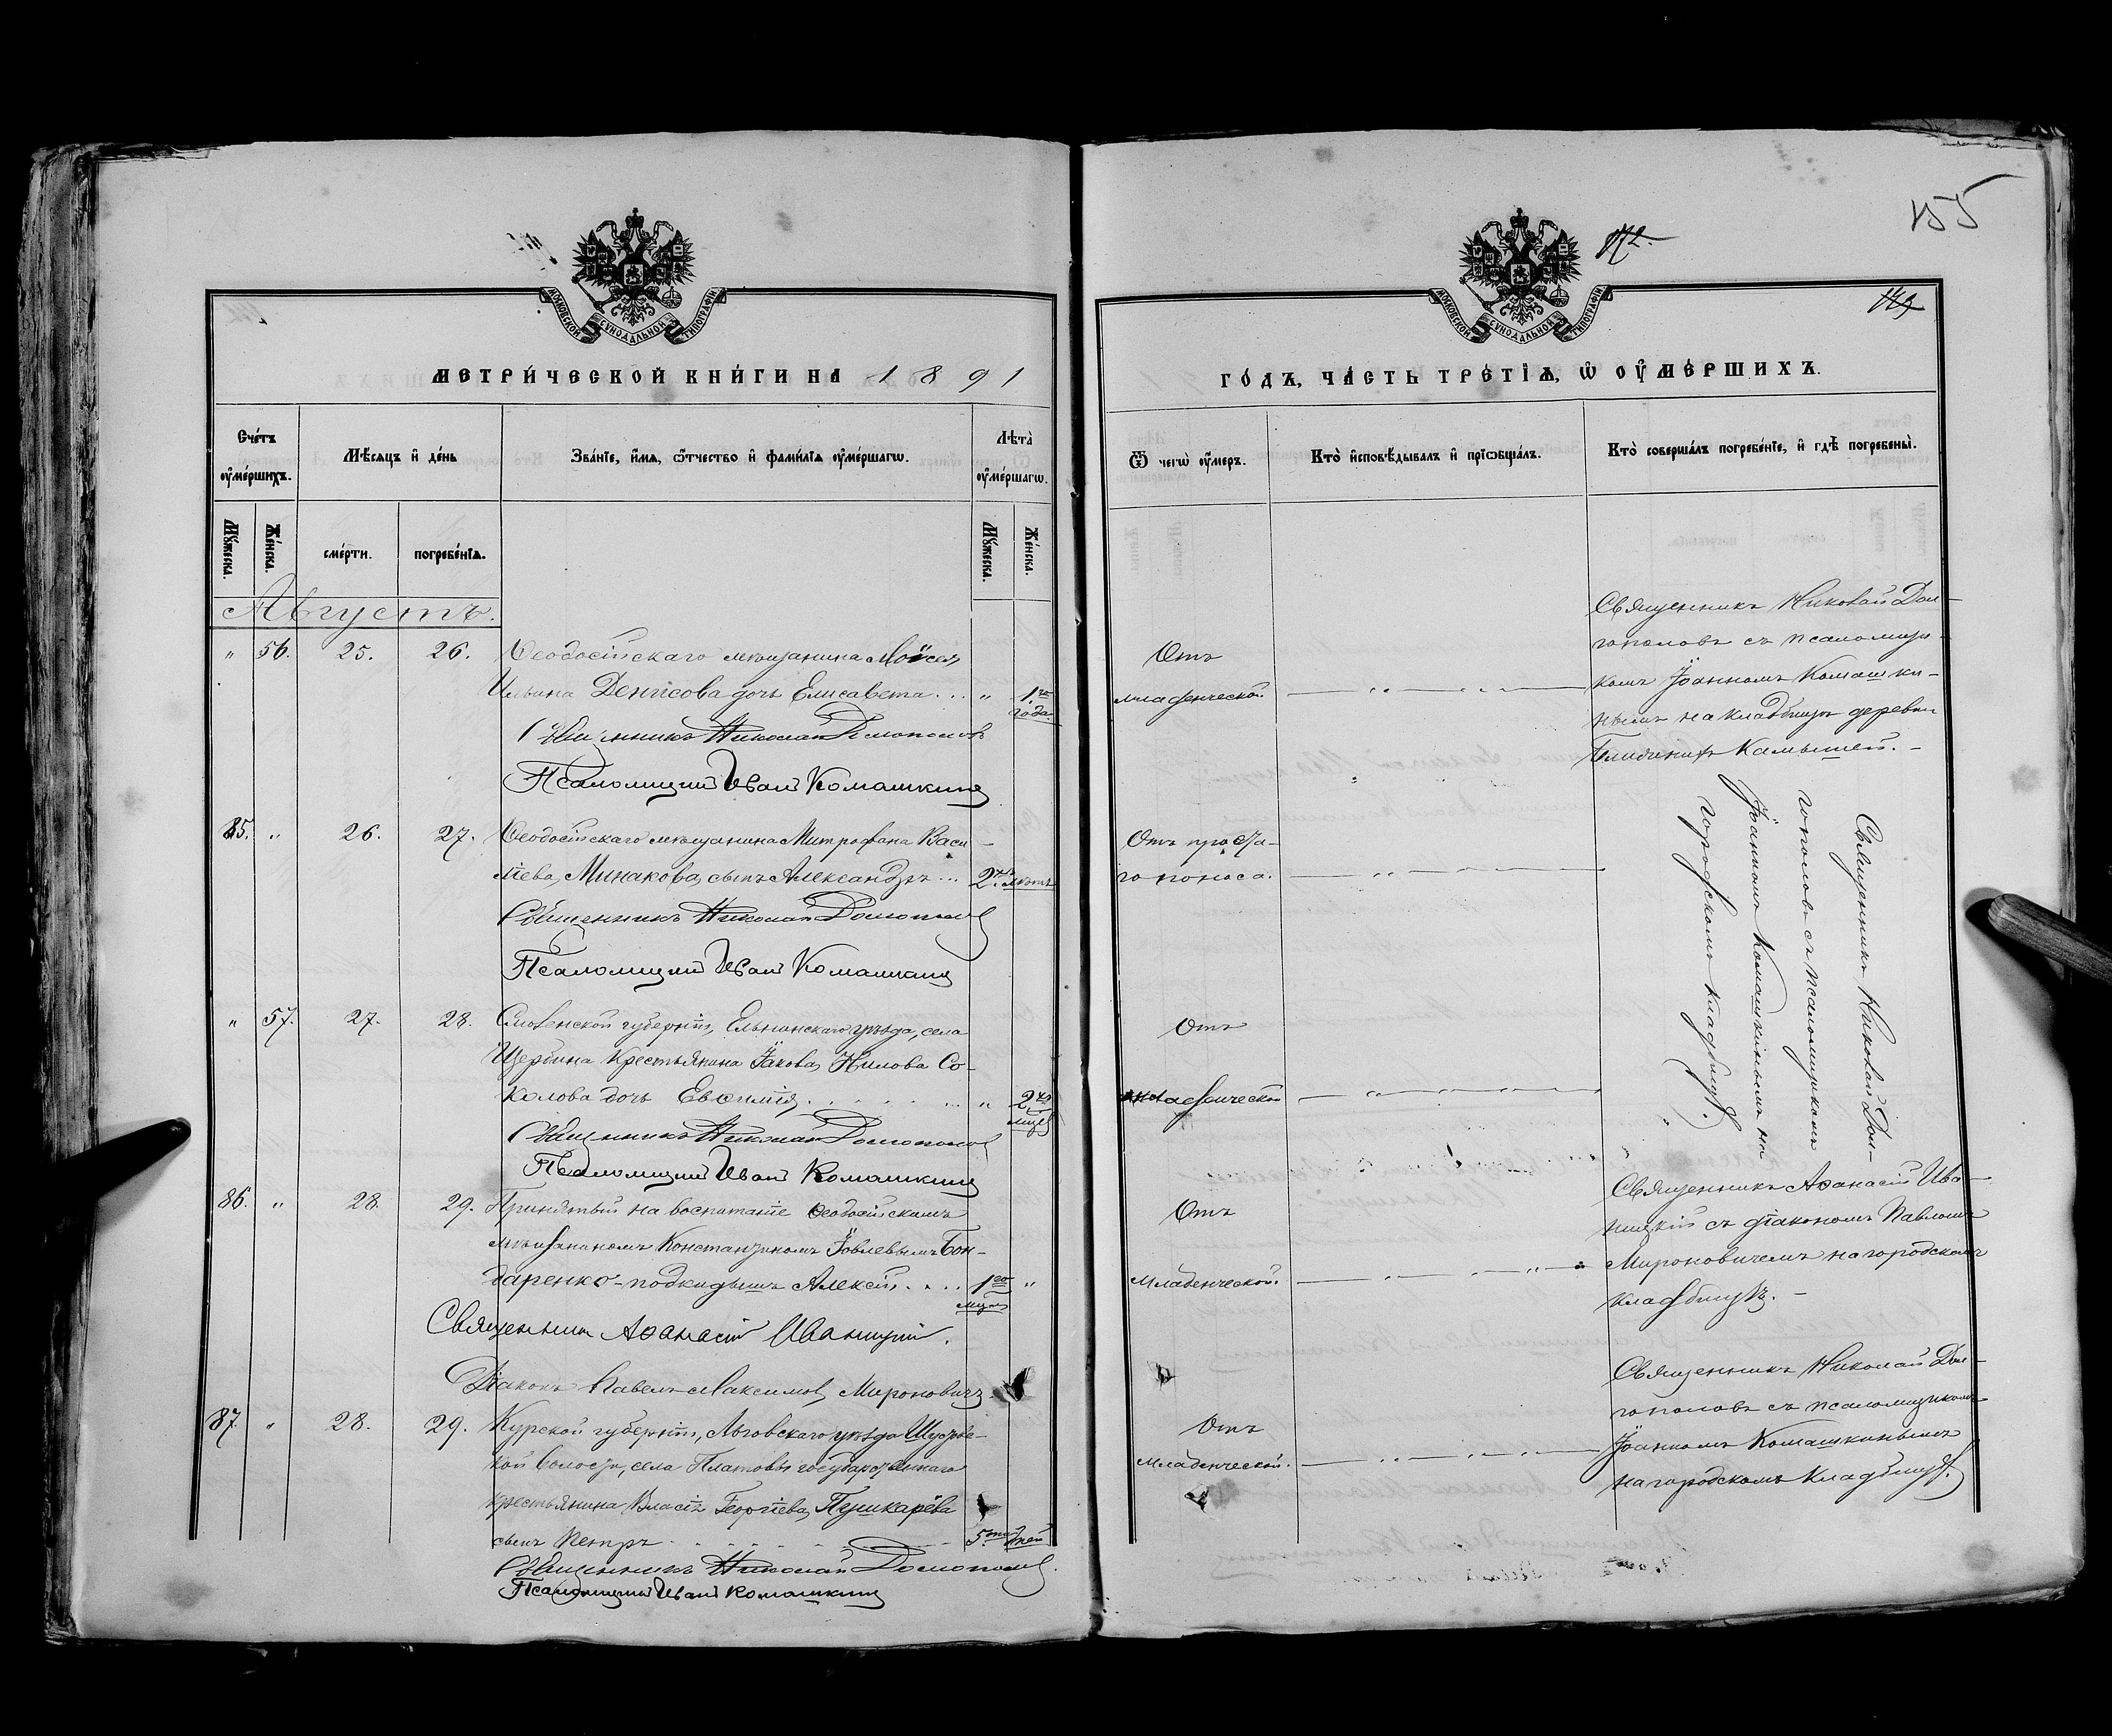 155
172.
149
МОСКОВСКОЙ СѴНОДАЛЬНОЙ ТИПОГРАФІИ
МОСКОВСКОЙ СѴНОДАЛЬНОЙ ТИПОГРАФІИ
МЕТРИ́ЧЕСКОЙ КНИ́ГИ НА 1891
ГО́ДЪ, ЧА́СТЬ ТРЕ́ТІѦ, Ѡ҆ ОУ҆МЕ́РШИХЪ.
Сче́тъ оу҆ме́ршихъ.
Мѣ́сяцъ и҆ де́нь
Зва́нїе, и҆́мѧ, ѻ҆́тчество и҆ фами́лїѧ оу҆ме́ршагѡ.
Лѣта̀ оу҆ме́ршагѡ.
Ѿ чегѡ̀ оу҆́меръ.
Кто̀ и҆сповѣ́дывалъ и҆ прїѡбща́лъ.
Кто̀ соверша́лъ погребе́нїе, и҆ гдѣ̀ погребены̀.
Мꙋ́жеска.
Же́нска.
сме́рти.
погребе́нїѧ.
Мꙋ́жеска.
Же́нска.
Августъ.
" 56. 25. 26. Ѳеодосійскаго мѣщанина Моѵсея
Ильина Денисова дочь Елисавета ... " 1го
года.
Священникъ Николай Долгополовъ
Псаломщикъ Иванъ Комашкинъ
Отъ
младенческой
Священникъ Николай Дол-
гополовъ съ псаломщи-
комъ Іоанномъ Комашки-
нымъ на кладбищѣ деревни
Ближнихъ Камышей.
85. " 26. 27. Ѳеодосійскаго мѣщанина Митрофана Васи-
ліева Минакова сынъ Александръ ... 2хъ лѣтъ
Священникъ Николай Долгополовъ
Псаломщикъ Иванъ Комашкинъ
Отъ проста-
го поноса.
Священникъ Николай Дол-
гополовъ съ псаломщикомъ
Іоанномъ Комашкинымъ на
городскомъ кладбищѣ.
" 57. 27. 28. Смоленской губерніи, Ельнинскаго уѣзда, села
Щербина крестьянина Іакова Нилова Со-
колова дочь Евѳимія ... " 2хъ
мцевъ
Священникъ Николай Долгополовъ
Псаломщикъ Иванъ Комашкинъ
Отъ
младенческой
86. " 28. 29. Принятый на воспитаніе Ѳеодосійскимъ
мѣщаниномъ Константиномъ Іовлевымъ Бон-
даренко-подкидышъ Алексій ... 1го "
мца
Священникъ Аѳанасій Иваницкій.
Діаконъ Павелъ Максимовъ Мироновичъ
Отъ
младенческой.
Священникъ Аѳанасій Ива-
ницкій съ діакономъ Павломъ
Мироновичемъ на городскомъ
кладбищѣ.
87. " 28. 29. Курской губерніи, Льговскаго уѣзда
кой волости, села Платовы государственнаго
крестьянина Власія Георгіева Пушкарёва
сынъ Петръ 5ти дней
Священникъ Николай Долгополовъ.
Псаломщикъ Иванъ Комашкинъ
Отъ
младенческой.
Священникъ Николай Дол-
гополовъ съ псаломщикомъ
Іоанномъ Комашкинымъ
на городскомъ кладбищѣ.